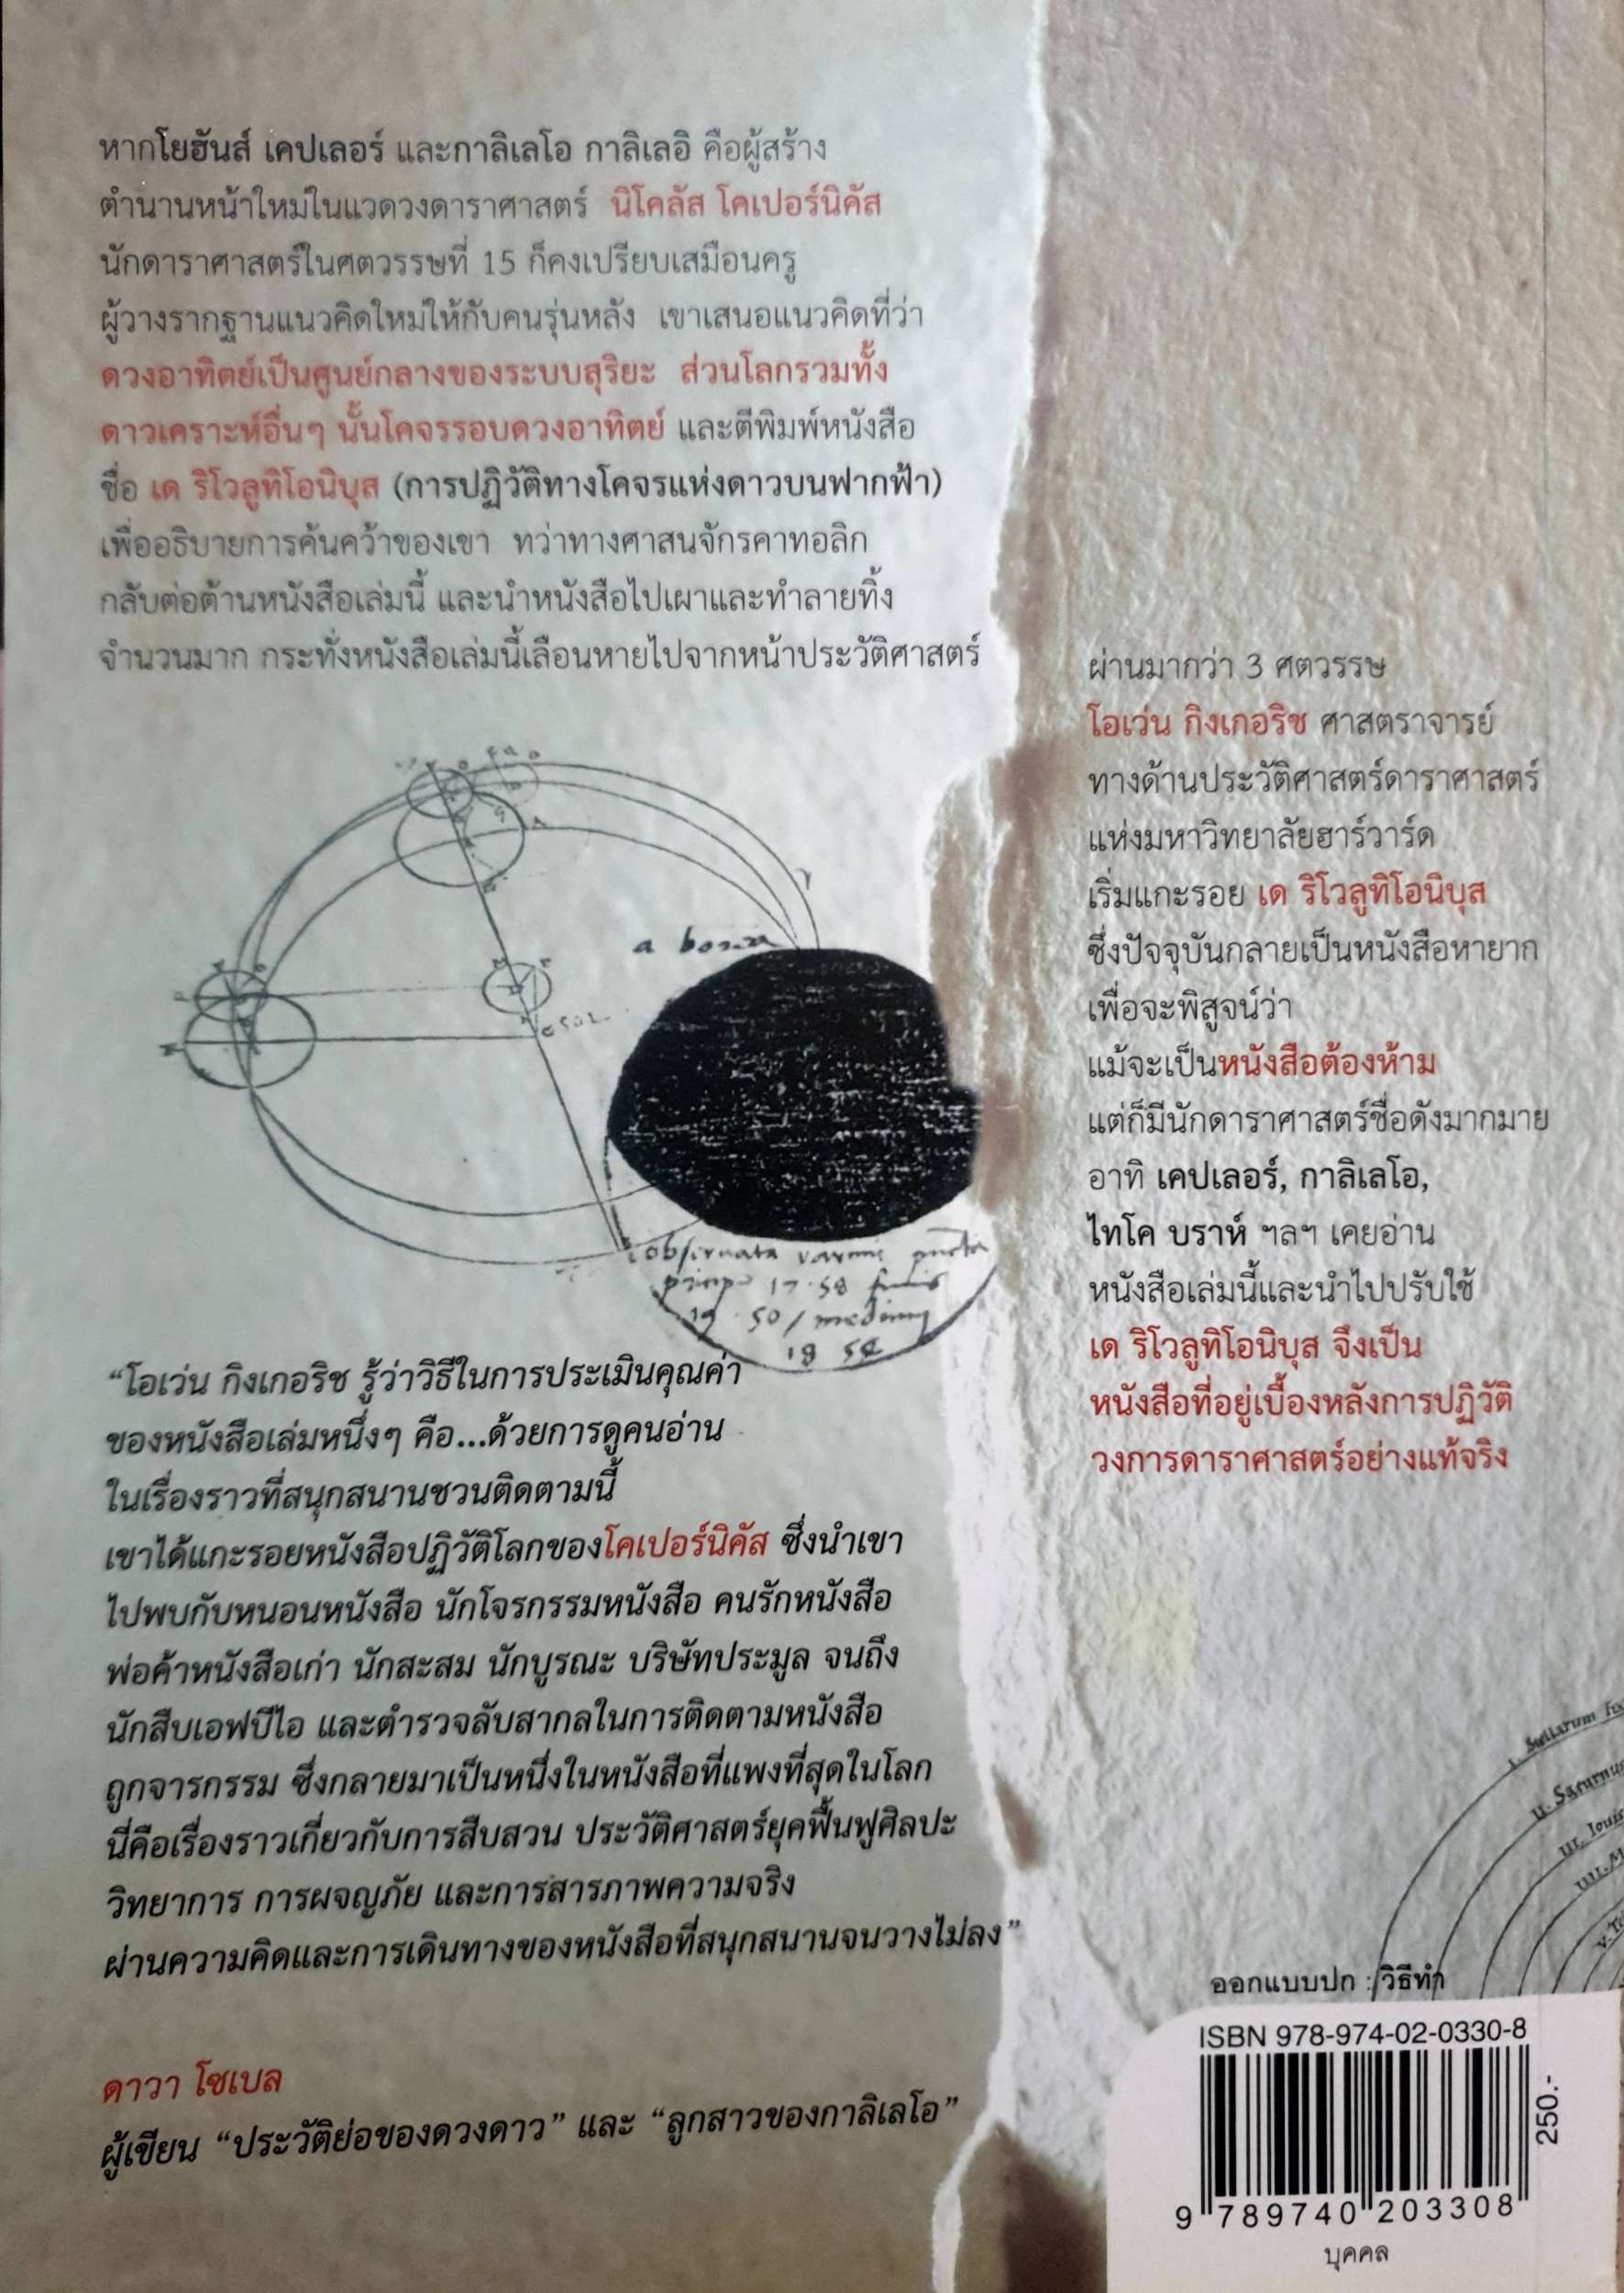 หากโยฮันส์ เคปเลอร์ และกาลิเลโอ กาลิเลอิ คือผู้สร้าง
ตำนานหน้าใหม่ในแวดวงดาราศาสตร์ นิโคลัส โคเปอร์นิคัส
นักดาราศาสตร์ในศตวรรษที่ 15 ก็คงเปรียบเสมือนครู
ผู้วางรากฐานแนวคิดใหม่ให้กับคนรุ่นหลัง เขาเสนอแนวคิดที่ว่า
ดวงอาทิตย์เป็นศูนย์กลางของระบบสุริยะ ส่วนโลกรวมทั้ง
ดาวเคราะห์อื่นๆ นั้นโคจรรอบดวงอาทิตย์ และตีพิมพ์หนังสือ
ชื่อ เด ริโวลูทิโอนิบุส (การปฏิวัติทางโคจรแห่งดาวบนฟากฟ้า)
เพื่ออธิบายการค้นคว้าของเขา ทว่าทางศาสนจักรคาทอลิก
กลับต่อต้านหนังสือเล่มนี้ และนำหนังสือไปเผาและทำลายทิ้ง
จำนวนมาก กระทั่งหนังสือเล่มนี้เลือนหายไปจากหน้าประวัติศาสตร์
ผ่านมากว่า 3 ศตวรรษ
โอเว่น กิงเกอริช ศาสตราจารย์
ทางด้านประวัติศาสตร์ดาราศาสตร์
แห่งมหาวิทยาลัยฮาร์วาร์ด
เริ่มแกะรอย เด ริโวลูทิโอนิบุส
ซึ่งปัจจุบันกลายเป็นหนังสือหายาก
เพื่อจะพิสูจน์ว่า
แม้จะเป็นหนังสือต้องห้าม
แต่ก็มีนักดาราศาสตร์ชื่อดังมากมาย
อาทิ เคปเลอร์, กาลิเลโอ,
ไทโค บราห์ ฯลฯ เคยอ่าน
หนังสือเล่มนี้และนำไปปรับใช้
เด ริโวลูทิโอนิบุส จึงเป็น
หนังสือที่อยู่เบื้องหลังการปฏิวัติ
วงการดาราศาสตร์อย่างแท้จริง
17·58
19 · 50 /
18 54
“โอเว่น กิงเกอริช รู้ว่าวิธีในการประเมินคุณค่า
ของหนังสือเล่มหนึ่งๆ คือ...ด้วยการดูคนอ่าน
ในเรื่องราวที่สนุกสนานชวนติดตามนี้
เขาได้แกะรอยหนังสือปฏิวัติโลกของโคเปอร์นิคัส ซึ่งนำเขา
ไปพบกับหนอนหนังสือ นักโจรกรรมหนังสือ คนรักหนังสือ
พ่อค้าหนังสือเก่า นักสะสม นักบูรณะ บริษัทประมูล จนถึง
นักสืบเอฟบีไอ และตำรวจลับสากลในการติดตามหนังสือ
ถูกจารกรรม ซึ่งกลายมาเป็นหนึ่งในหนังสือที่แพงที่สุดในโลก
นี่คือเรื่องราวเกี่ยวกับการสืบสวน ประวัติศาสตร์ยุคฟื้นฟูศิลปะ
วิทยาการ การผจญภัย และการสารภาพความจริง
ผ่านความคิดและการเดินทางของหนังสือที่สนุกสนานจนวางไม่ลง”
ดาวา โซเบล
ผู้เขียน “ประวัติย่อของดวงดาว” และ “ลูกสาวของกาลิเลโอ”
ออกแบบปก : วิธีทำ
ISBN 978-974-02-0330-8
250.-
9 789740 203308
บุคคล